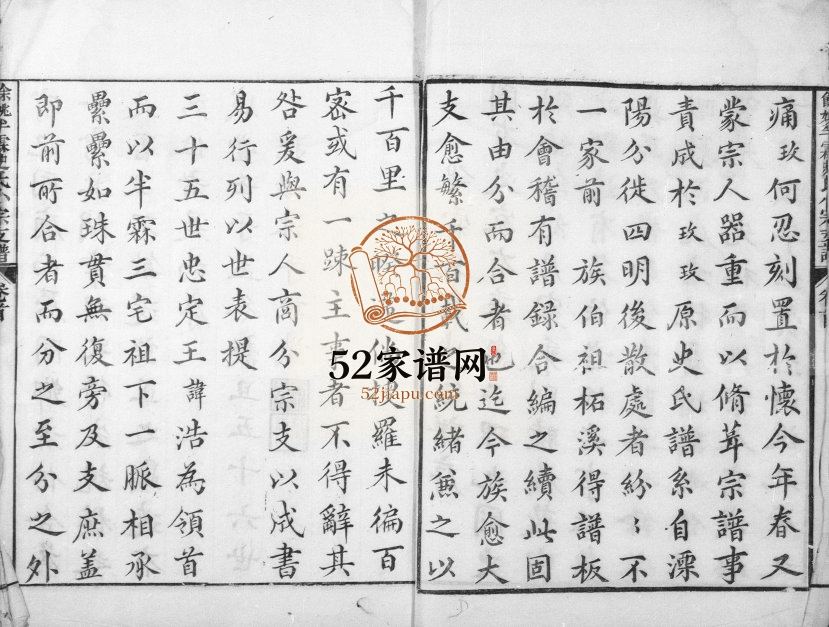 痛玫何忍刻置於懷今年春又
蒙宗人器重而以脩葺宗譜事
責成於玫玫原史氏譜系自溧
陽分徙四明後散處者紛〻不
一家前 族伯祖柘溪得譜板
於會稽有譜録合編之續此固
其由分而合者也迄今族愈大
支愈繁千百 統緒兼之以
千百里 羅未徧百
宻或有一踈主事者不得辭其
咎爰與宗人商分宗支以成書
易行列以世表提
三十五世忠定王諱浩為領首
而以半霖三宅祖下一脈相承
纍纍如珠貫無復旁及支庶蓋
即前所合者而分之至分之外
52家谱网
52jiapu.com